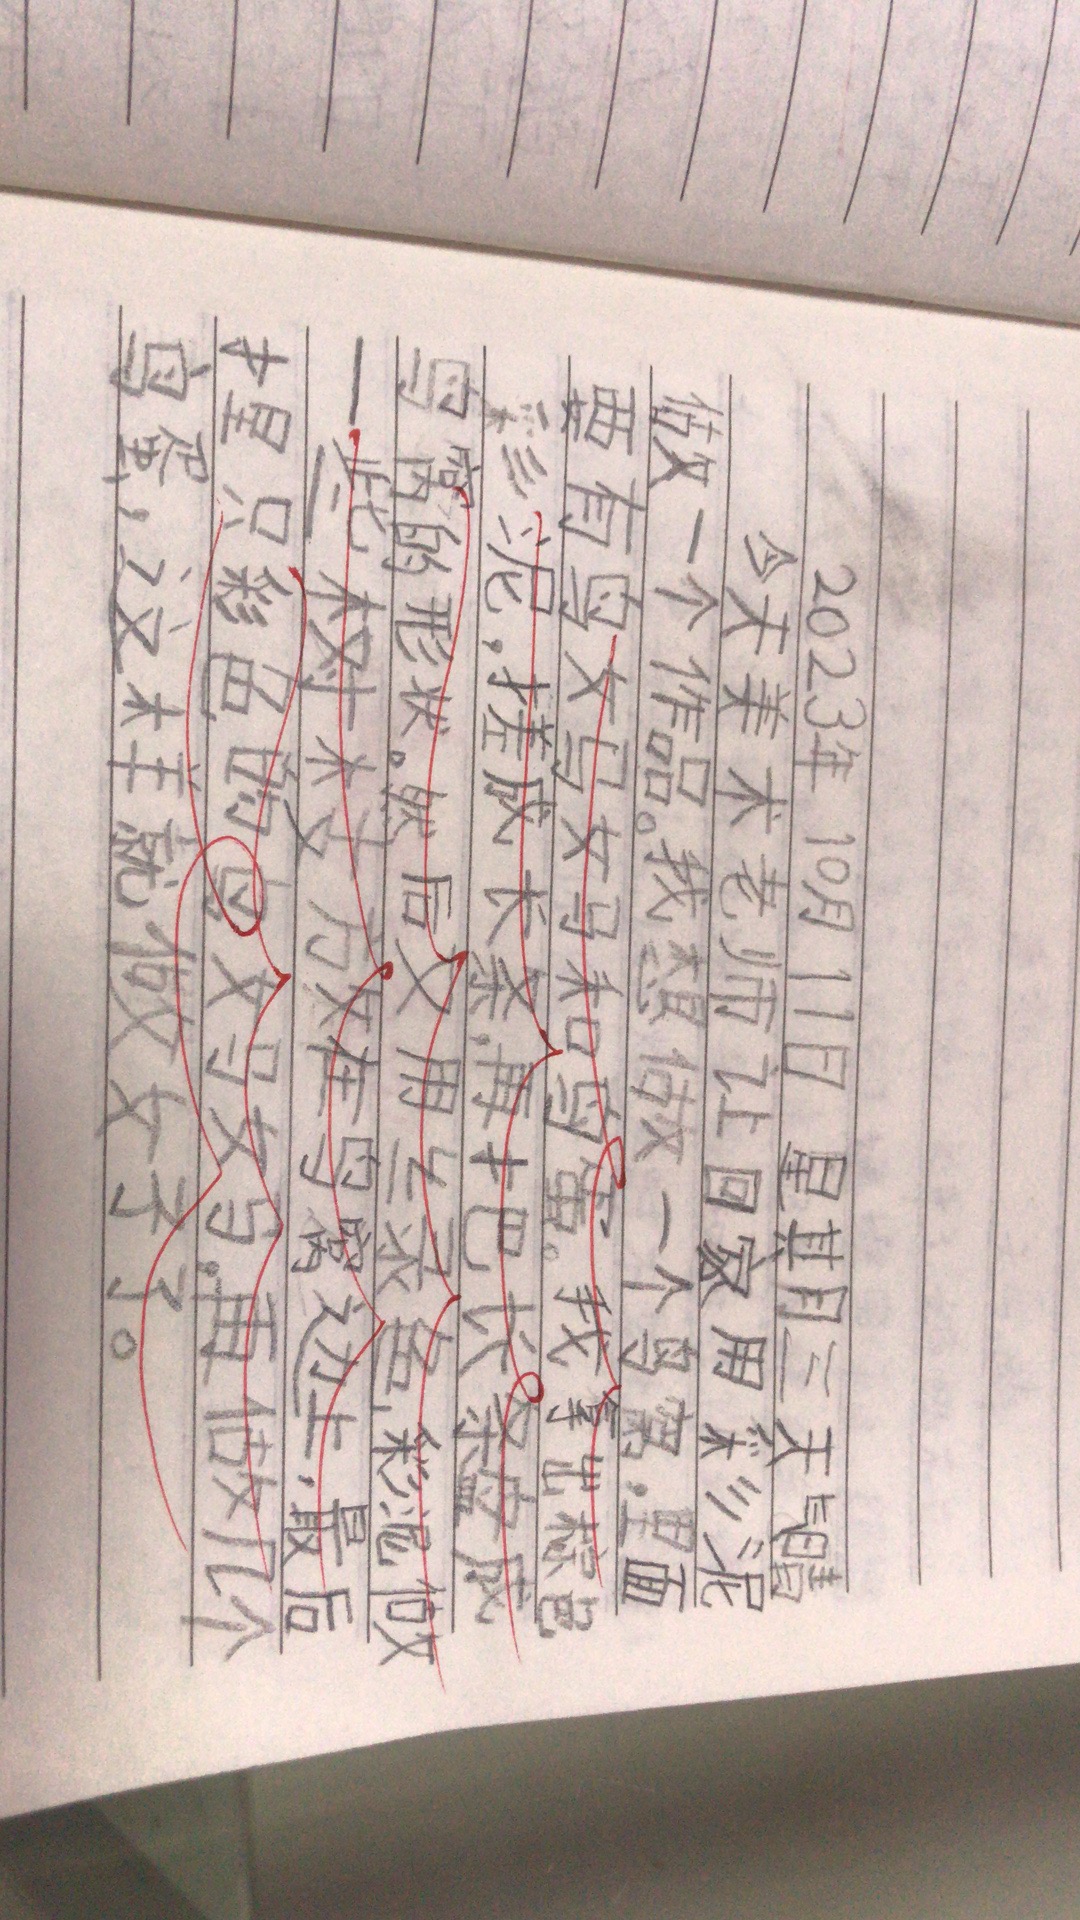 2023年 10月 11日 星其月三 天晴
今天美术老师让回家用彩泥
做一个作品。我想做一个鸟窝,里面
要有鸟女马女马和鸟蛋。我拿出棕色
彩泥,搓成长条,再把长条盘成
鸟窝的形状。然后又用绿色彩泥做
一些树木子放在鸟窝边上,最后
捏只彩色的鸟女马女马,再做几个
鸟蛋,这样就做好了。